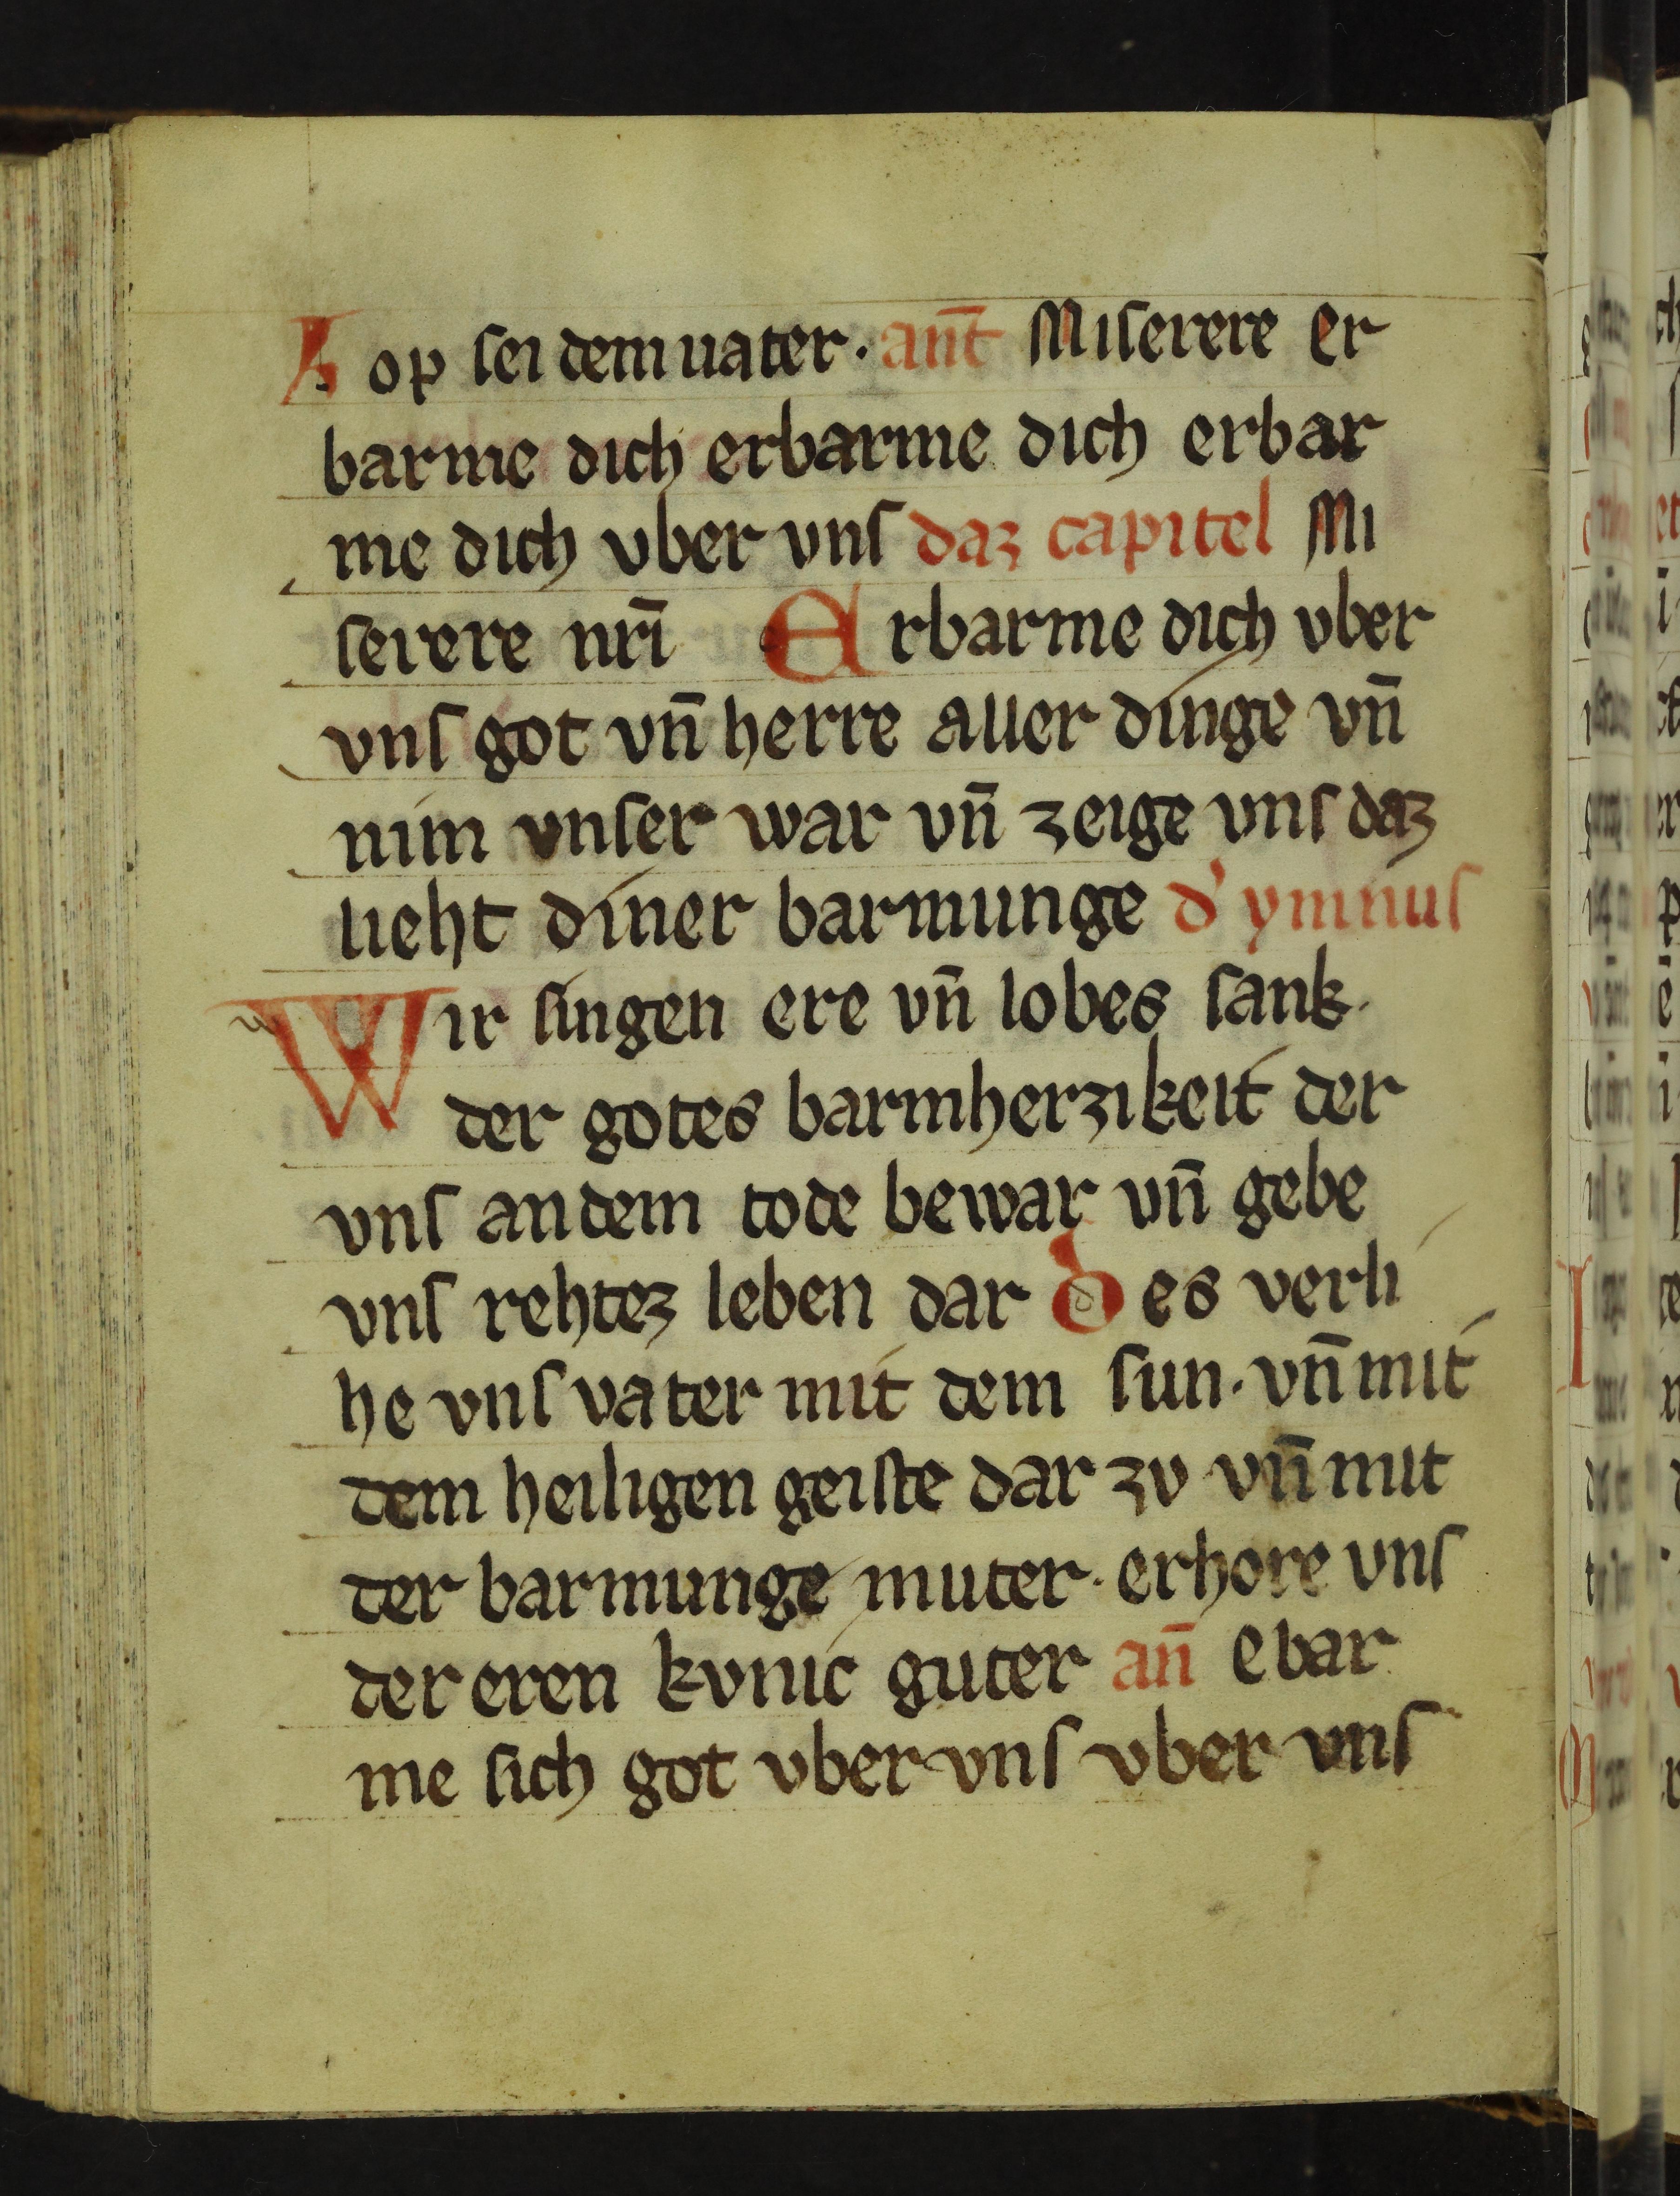 Lop sei dem uater · an̄t Miserere er
barme dich erbarme dich erbar
me dich vber vns daz capitel Mi
serere nr̄i Erbarme dich vber
vns got vn̄ herre aller dinge vn̄
nim vnser war vn̄ zeige vns daz
lieht diner barmunge d' ymnus
Wir singen ere vn̄ lobes sank.
der gotes barmherzikeit der
vns an dem tode bewar vn̄ gebe
vns rehtez leben dar des verli
he vns vater mit dem sun · vn̄ mit
dem heiligen geiste dar zv vn̄ mit
der barmunge muter · erhore vns
der eren kvnic guter an̄ Ebar
me sich got vber vns vber vns